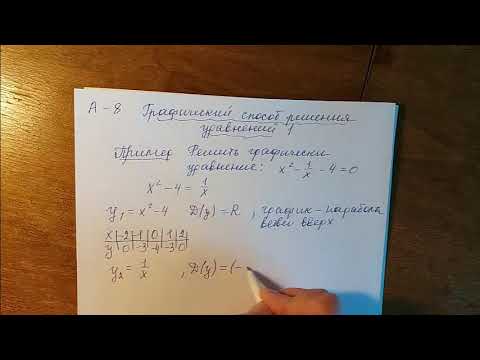 А-8 Графический способ решения
уравнений 1
Пример Решить графически
уравнение: x² - 1/x - 4 = 0
x² - 4 = 1/x
y₁ = x² - 4 D(y) = R, график - парабола
ветви вверх
x | -2 | -1 | 0 | 1 | 2
y | 0 | -3 | -4 | -3 | 0
y₂ = 1/x, D(y) = (-